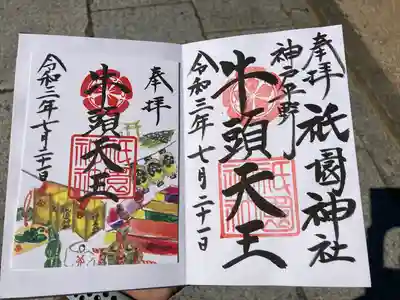 奉拝
祇園神社
神戸平野
牛頭天王
令和三年七月二十一日
祇園神社
奉拝
牛頭天王
令和三年七月二十一日
祇園神社